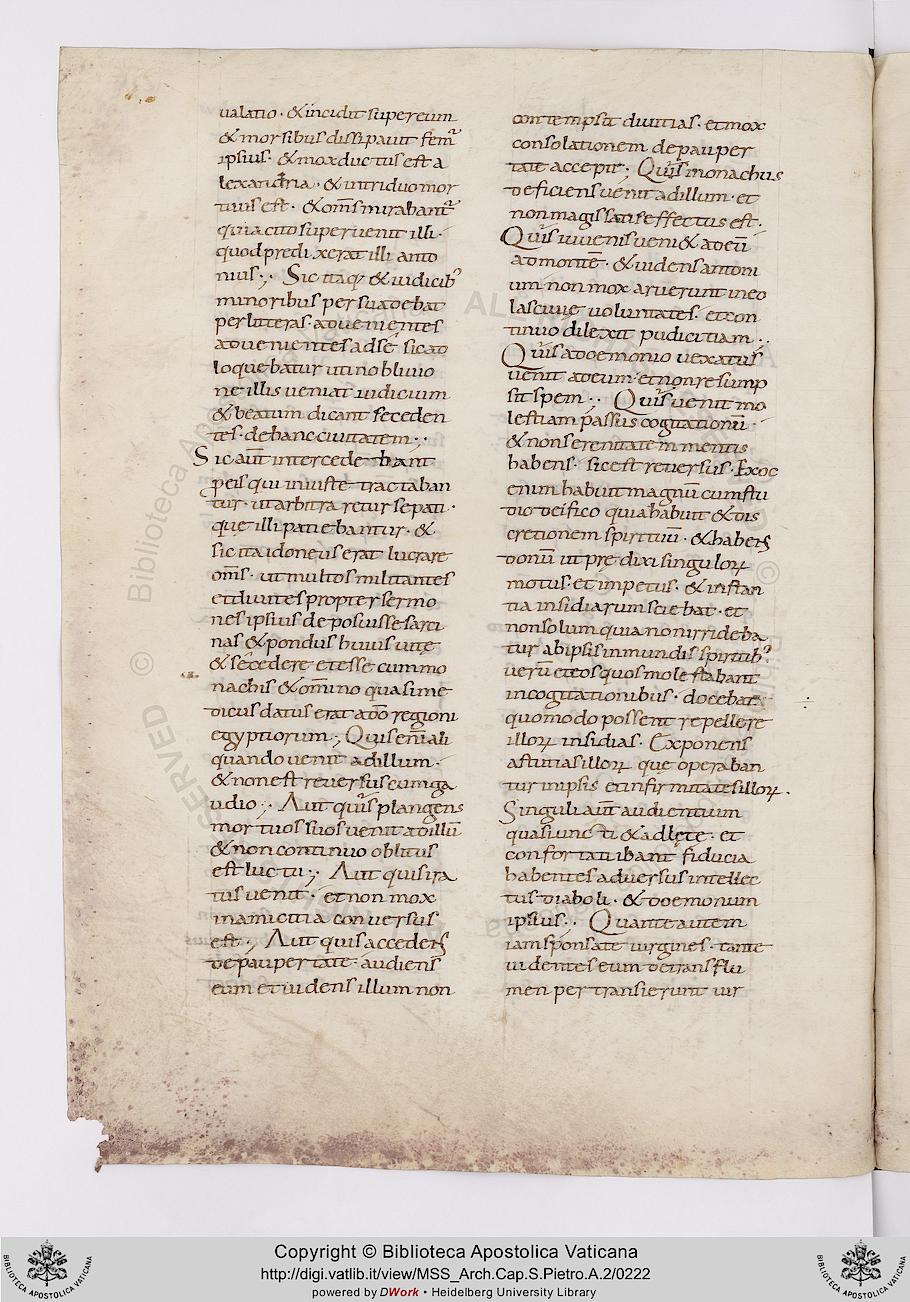 ualatio · & incidit super eum
& morsibus dissipauit fem̄
ipsius · & mox ductus est a
lexandria · & intriduo mor
tuus est · & om̄s mirabant̄
quia cito superuenit illi ·
quod predixerat illi anto
nius ·, Sic itaq; & iudicib;
minoribus persuadebat
per literas · aduenientes
aduenientes ad se sic ad
loquebatur uti no bliuio
ne illis ueniat iudicium
& beatum dicant seceden
tes · de hanc ciuitatem ·,
Sic aūt intercede bant
peis qui iniuste tractaban
tur · ut arbitraretur se pati ·
que illi patiebantur · &
sic ita idoneus erat lucrare
om̄s · ut multos militantes
et diuites propter sermo
nes ipsius deposuisse sarci
nas & pondus huius uite
& secedere et esse cum mo
nachis & om̄ino quasi me
dicus datus erat a dō regioni
egyptiorum ·, Quis enī ali
quando uenit ad illum ·
& non est reuersus cum ga
udio ·, Aut quis plangens
mortuos suos uenit ad illū
& non continuo oblitus
est luctu ·, Aut quis ira
tus uenit · et non mox
inamicitia conuersus
est ·, Aut quis accedens
de paupertate · audiens
eum et uidens illum non
contempsit diuitias · et mox
consolationem de pauper
tate accepit · Quis monachus
deficiens uenit ad illum · et
non magis satis effectus est ·
Quis iuuenis ueni & ad eū
ad montē · & uidens antoni
um non mox aruerunt in eo
lasciuie uoluntates · et con
tinuo dilexit pudicitiam ·,
Quis a doemonio uexatus
uenit ad eum · et non resump
sit spem ·, Quis uenit mo
lestiam passus cogitationū ·
& non serenitatem mentis
habens · sic est reuersus · Ex oc
enim habuit magnū cum stu
dio deifico quia habuit & dis
cretionem spirituū · & habens
donū ut predixi singuloꝝ
motus · et impetus · & instan
tia insidiarum sciebat · et
non solum quia non irrideba
tur ab ipsis inmundis spiritib;
uerū et eos quos molestabant
in cogitationibus · docebat
quomodo possent repellere
illoꝝ insidias · Exponens
astutias illoꝝ que operaban
tur in ipsis et infirmitates illoꝝ ·
Singuli aūt audientium
quasi uncti & adlete · et
confortati ibant fiducia
habentes aduersus intellec
tus diaboli · & doemonum
ipsius ·, Quante autem
iam sponsate uirgines · tante
uidentes eum de trans flu
men per transierunt uir
Copyright © Biblioteca Apostolica Vaticana
http://digi.vatlib.it/view/MSS_Arch.Cap.S.Pietro.A.2/0222
powered by DWork • Heidelberg University Library